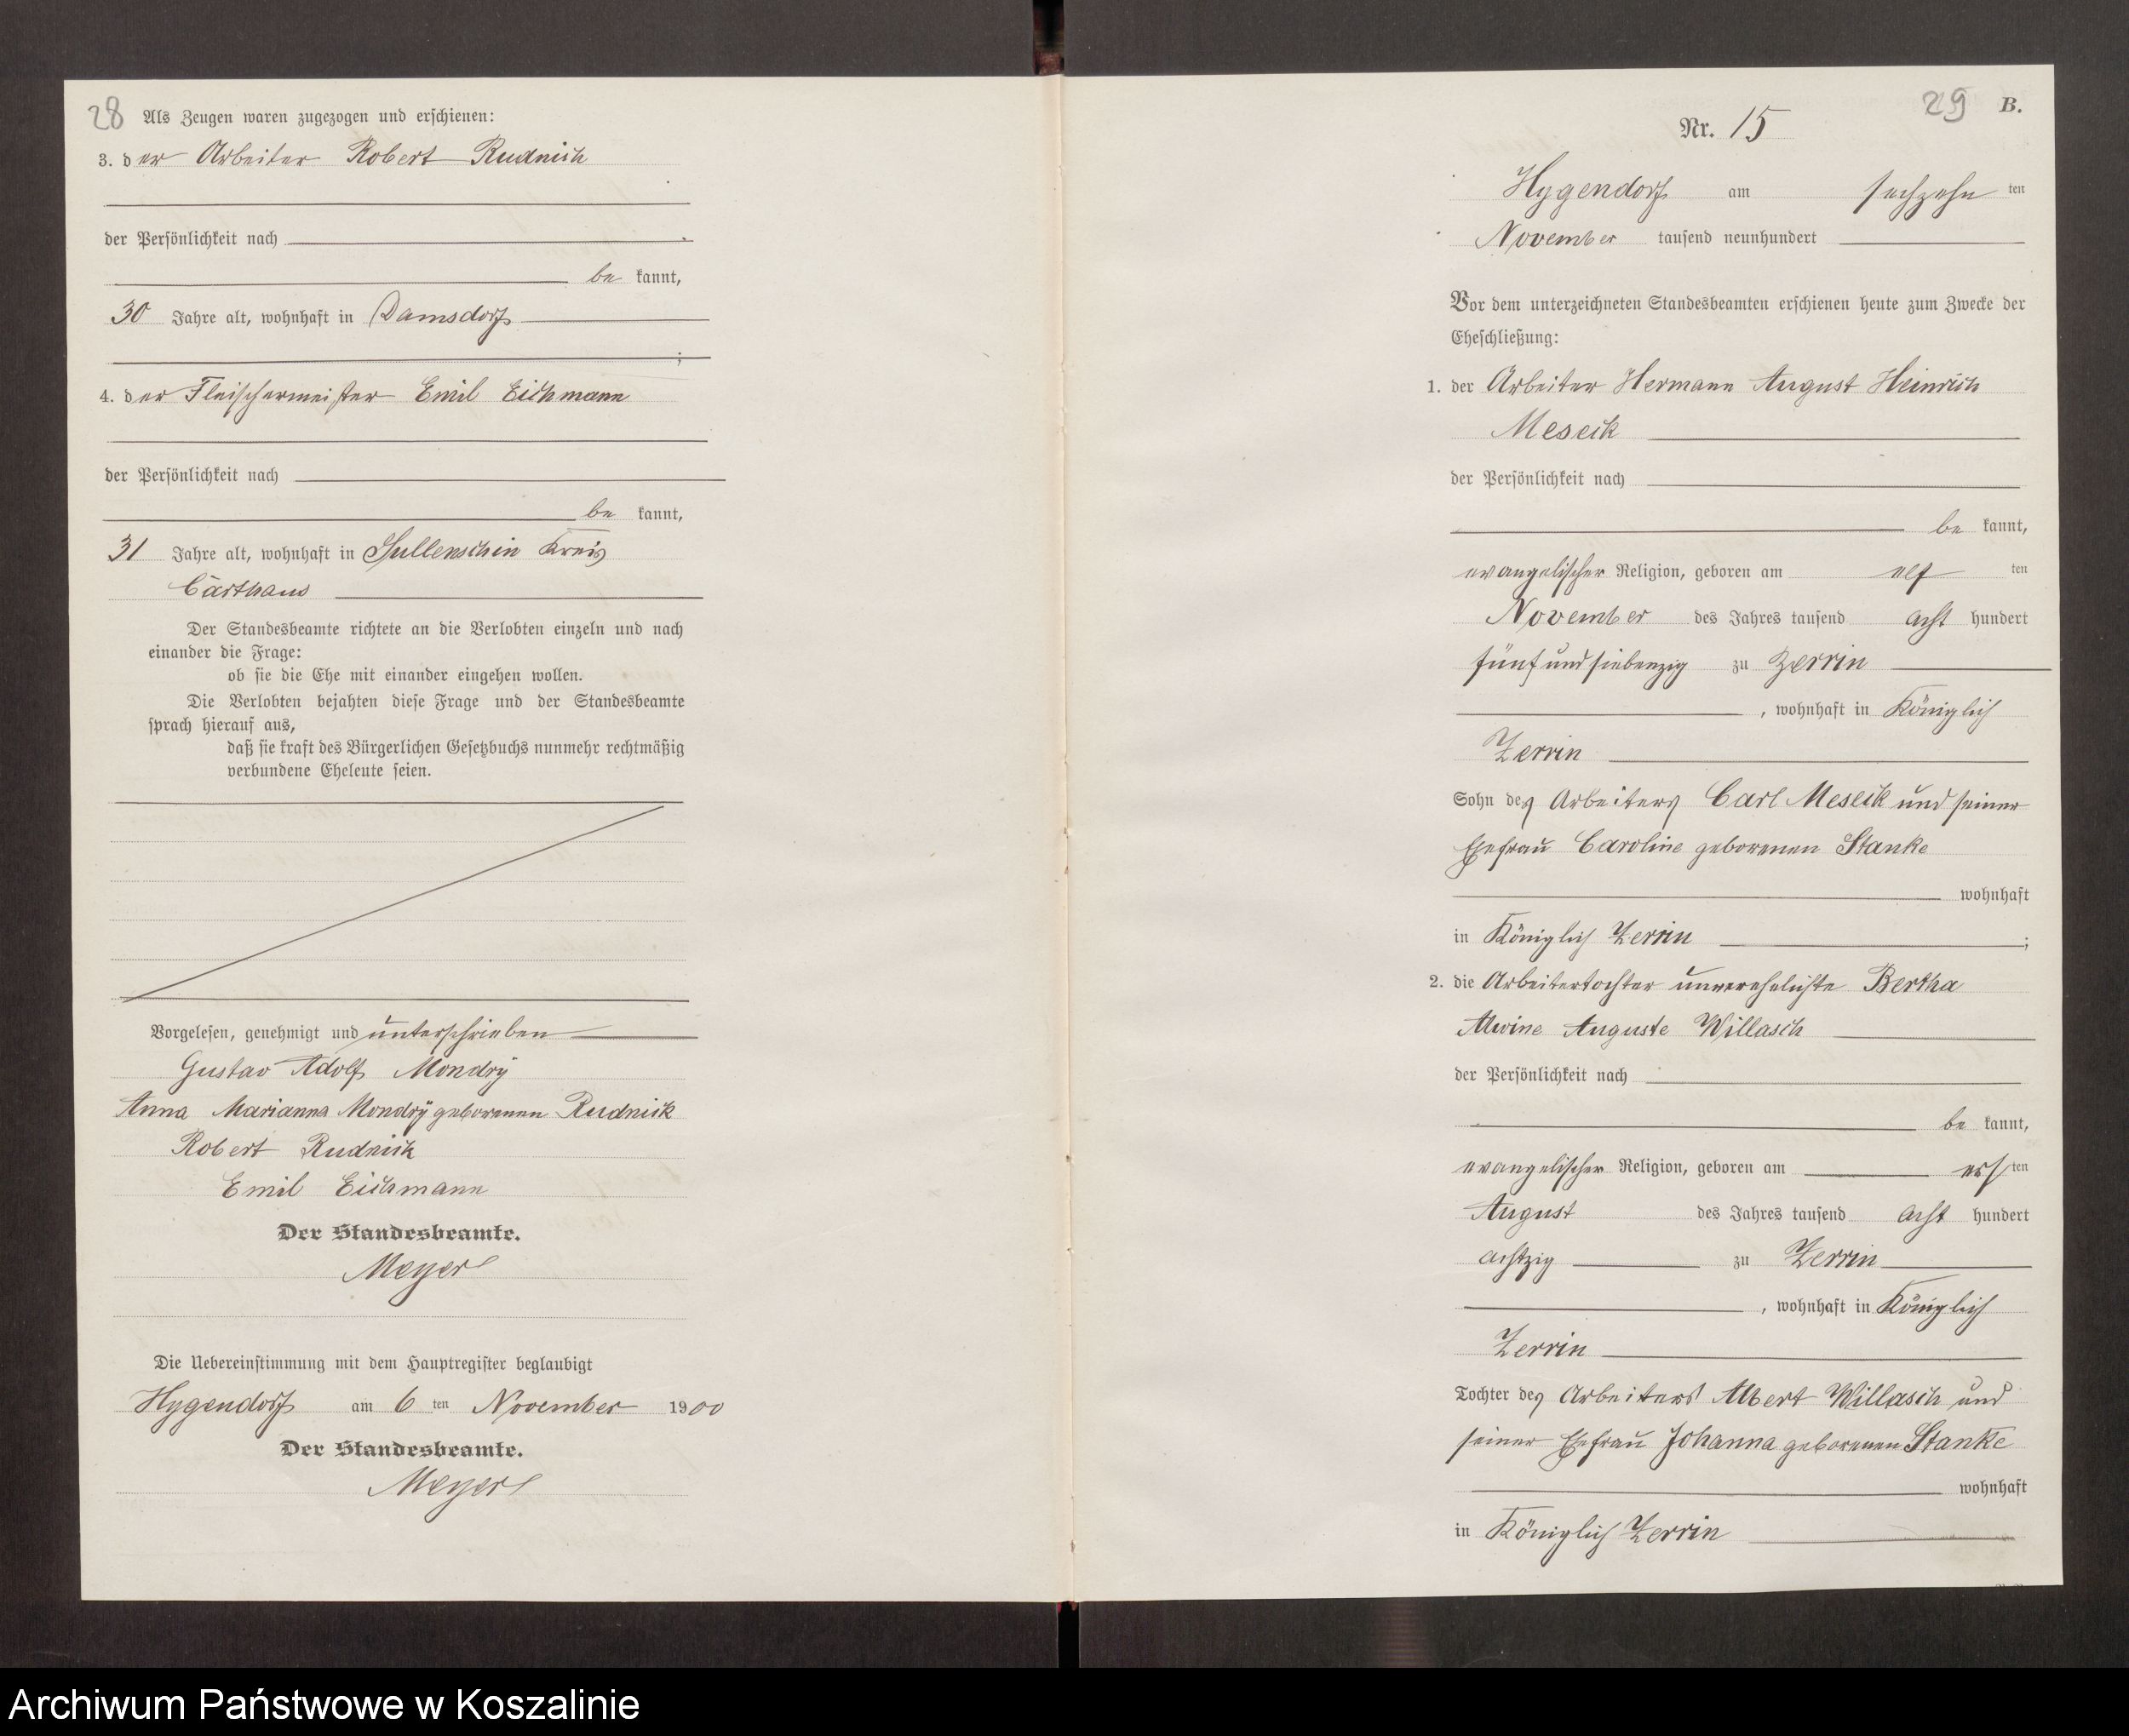 28 Als Zeugen waren zugezogen und erschienen:
3. der Arbeiter Robert Rudnick
der Persönlichkeit nach
be kannt,
30 Jahre alt, wohnhaft in Damsdorf
;
4. der Fleischermeister Emil Eichmann
der Persönlichkeit nach
be kannt,
31 Jahre alt, wohnhaft in Sullenschin Kreis
Carthaus
Der Standesbeamte richtete an die Verlobten einzeln und nach
einander die Frage:
ob sie die Ehe mit einander eingehen wollen.
Die Verlobten bejahten diese Frage und der Standesbeamte
sprach hierauf aus,
daß sie kraft des Bürgerlichen Gesetzbuchs nunmehr rechtmäßig
verbundene Eheleute seien.
Vorgelesen, genehmigt und unterschrieben
Gustav Adolf Mondry
Anna Marianna Mondry geborenen Rudnick
Robert Rudnick
Emil Eichmann
Der Standesbeamte.
Meyer
Die Uebereinstimmung mit dem Hauptregister beglaubigt
Hygendorf am 6 ten November 1900
Der Standesbeamte.
Meyer
29 B.
Nr. 15
Hygendorf am sechzehn ten
November tausend neunhundert
Vor dem unterzeichneten Standesbeamten erschienen heute zum Zwecke der
Eheschließung:
1. der Arbeiter Hermann August Heinrich
Meseck
der Persönlichkeit nach
be kannt,
evangelischer Religion, geboren am elf ten
November des Jahres tausend acht hundert
fünfundsiebenzig zu Zerrin
, wohnhaft in Königlich
Zerrin
Sohn des Arbeiters Carl Meseck und seiner
Ehefrau Caroline geborenen Stanke
wohnhaft
in Königlich Zerrin ;
2. die Arbeitertochter unverehelichte Bertha
Alwine Auguste Willasch
der Persönlichkeit nach
be kannt,
evangelischer Religion, geboren am ersten
August des Jahres tausend acht hundert
achtzig zu Zerrin
, wohnhaft in Königlich
Zerrin
Tochter des Arbeiters Albert Willasch und
seiner Ehefrau Johanna geborenen Stanke
wohnhaft
in Königlich Zerrin
Archiwum Państwowe w Koszalinie